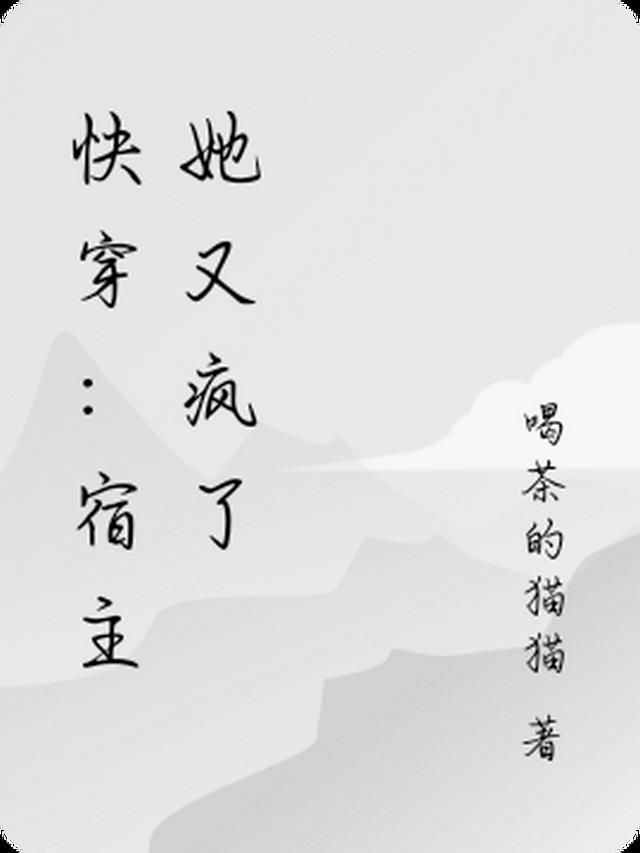 快穿：宿主
她又疯了
喝茶的猫猫 著